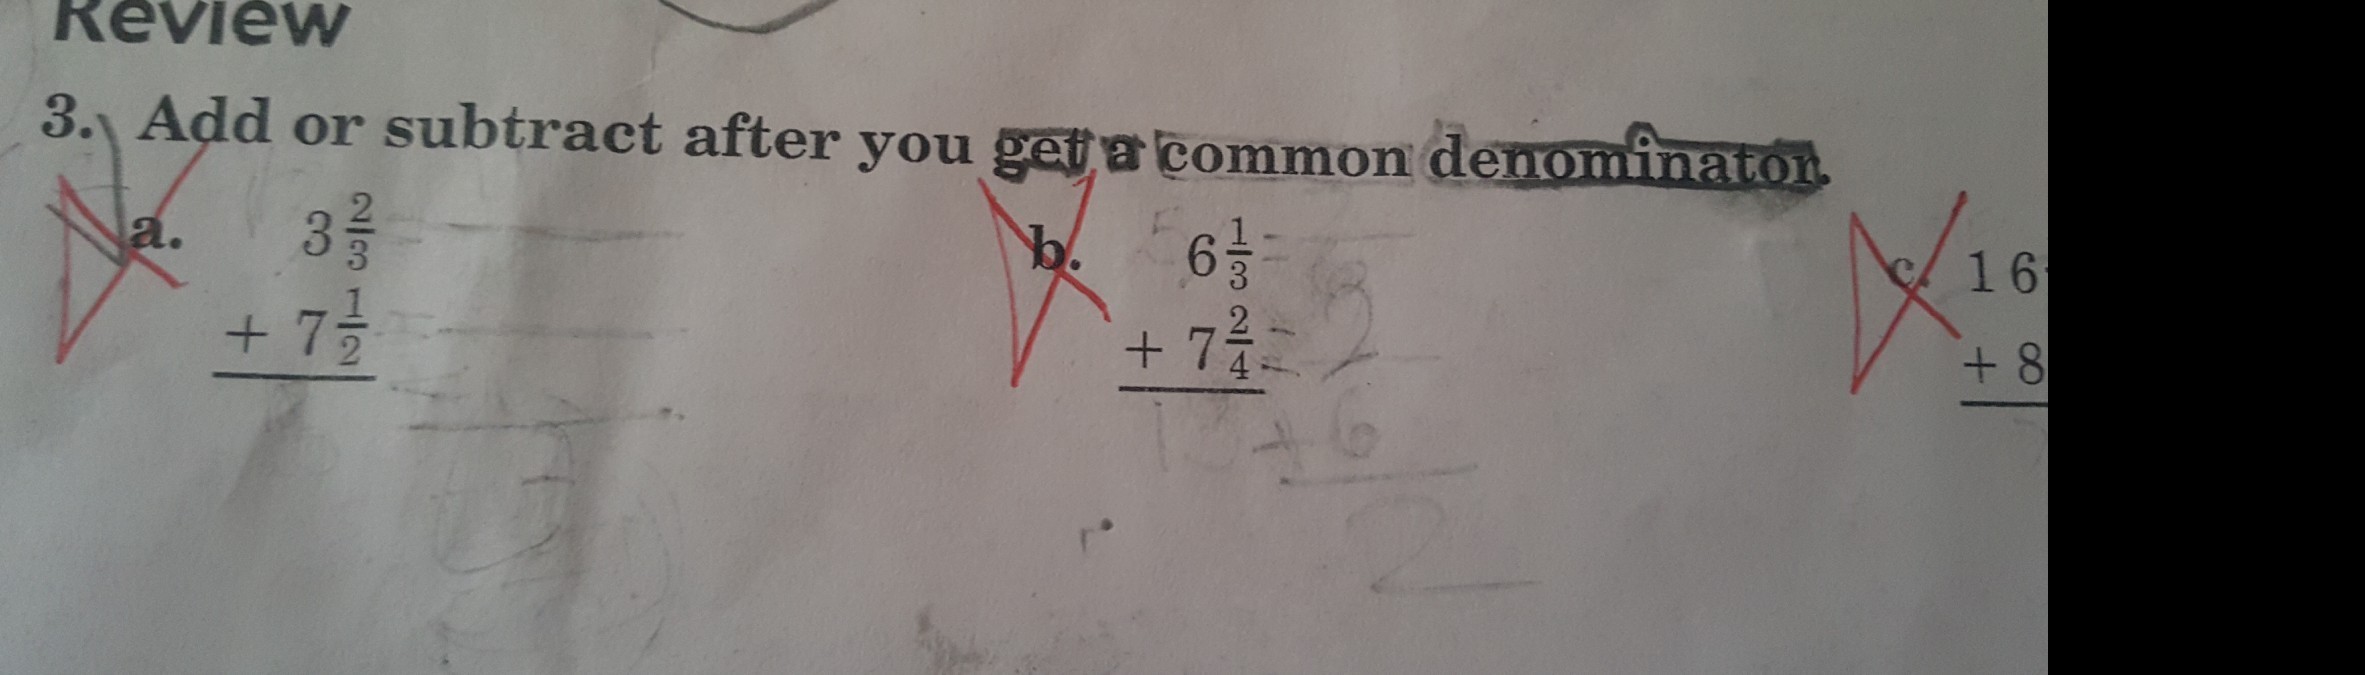 Review
3. Add or subtract after you get a common denominator.
a. 3 2/3 b. 6 1/3 = c. 16
+ 7 1/2 + 7 2/4 = 2 + 8
13 + 6
2